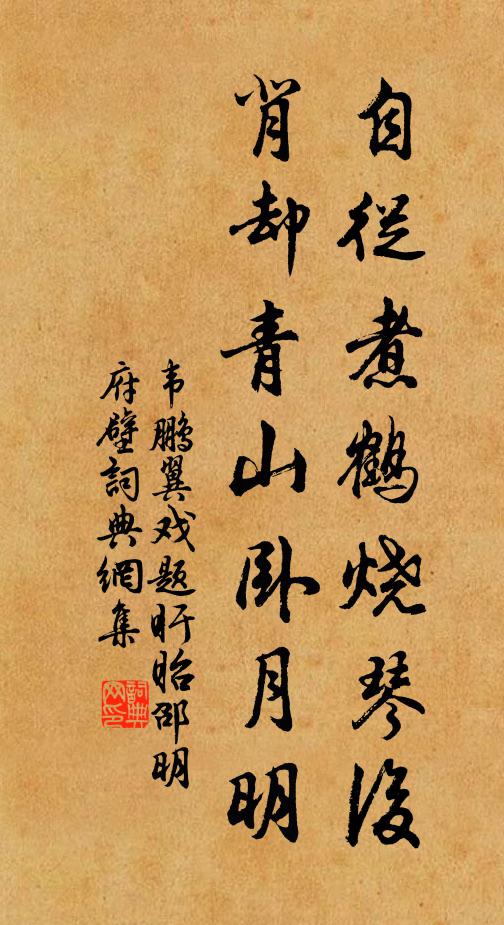 自從煮鶴烧琴後
背却青山卧月明
韦鹏翼戏题盱眙邵明
府壁詞典網集
詞典
网印